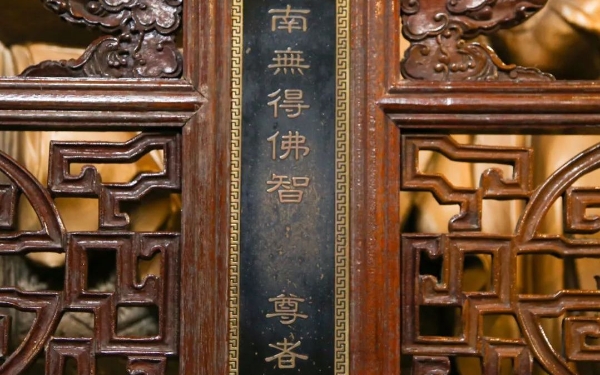 南無得佛智 尊者